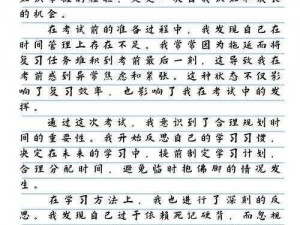 的机会。
在考试前的准备过程中，我发现自己在
时间管理上存在不足。我常常因为拖延而将
复习任务堆积到考前最后一刻，这导致我在
考前感到异常焦虑和紧张。这种状态不仅影
响了复习效率，也影响了我在考试中的发
挥。
通过这次考试，我意识到了合理规划时
间的重要性。我开始反思自己的学习习惯，
决定在未来的学习中，提前制定学习计划，
合理分配时间，避免临时抱佛脚的情况发
生。
在学习方法上，我也进行了深刻的反
思。我发现自己过于依赖死记硬背，而忽视